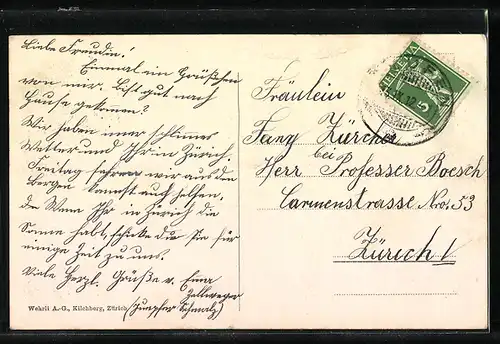 Liebe Freundin!
Einmal ein Grüßchen
von mir. Bist gut nach
Hause gekommen?
Wir haben imer schlimmes
Wetter und Ihr in Zürich.
Freitag fahren wir aus den
Bergen kannst auch helfen.
Wenn Ihr in Zürich die
Sonne habt, schicke du sie für
einige Zeit zu uns.
Viele Herzl. Grüße v. Emma
Zellweger
Wehrli A.-G., Kilchberg, Zürich
HELVETIA
5
Fräulein
Fany Zürcher
bei
Herr Professer Boesch
Carmenstrasse Nro. 53
Zürich 1